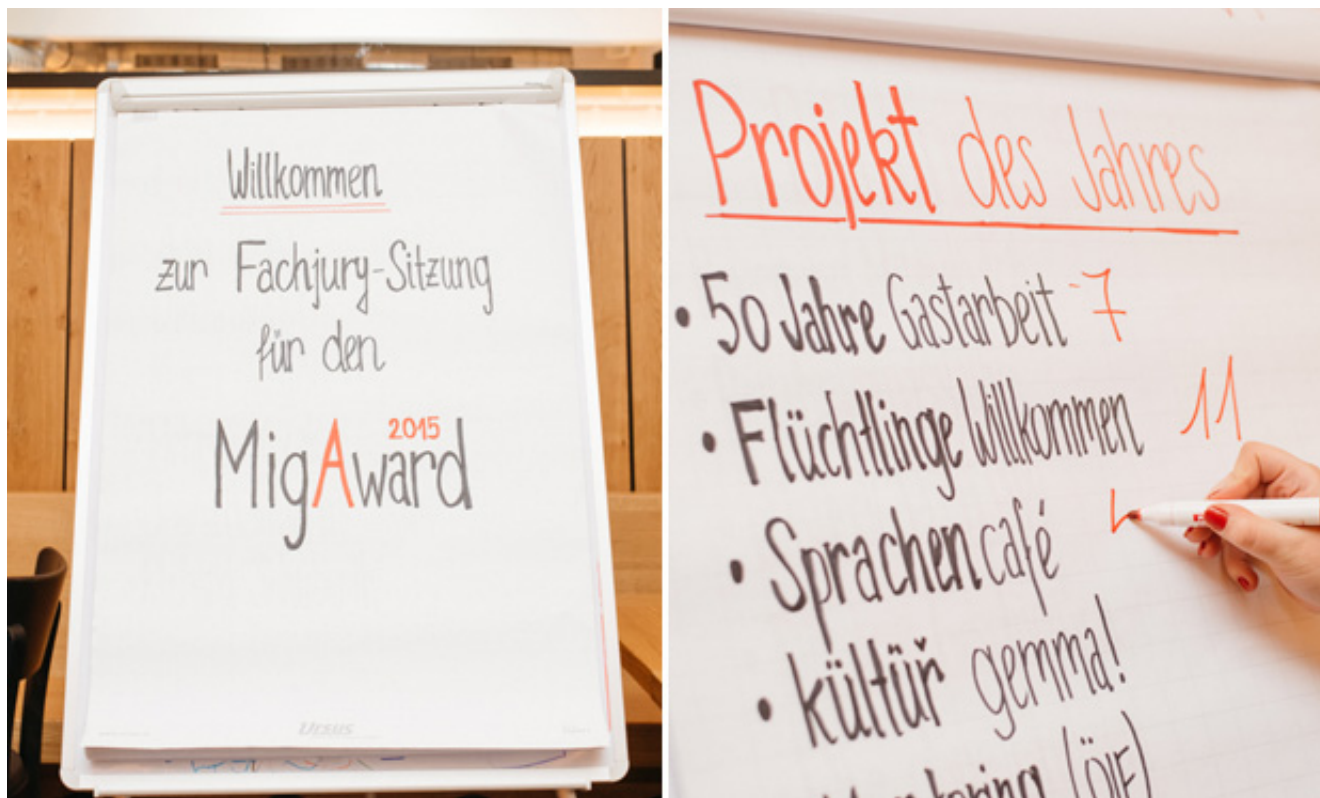 Willkommen
zur Fachjury-Sitzung
für den
2015
MigAward
Ursus
Projekt des Jahres
• 50 Jahre Gastarbeit - 7
• Flüchtlinge Willkommen 11
• Sprachencafé
• kültüř gemma!
(ÖIF)